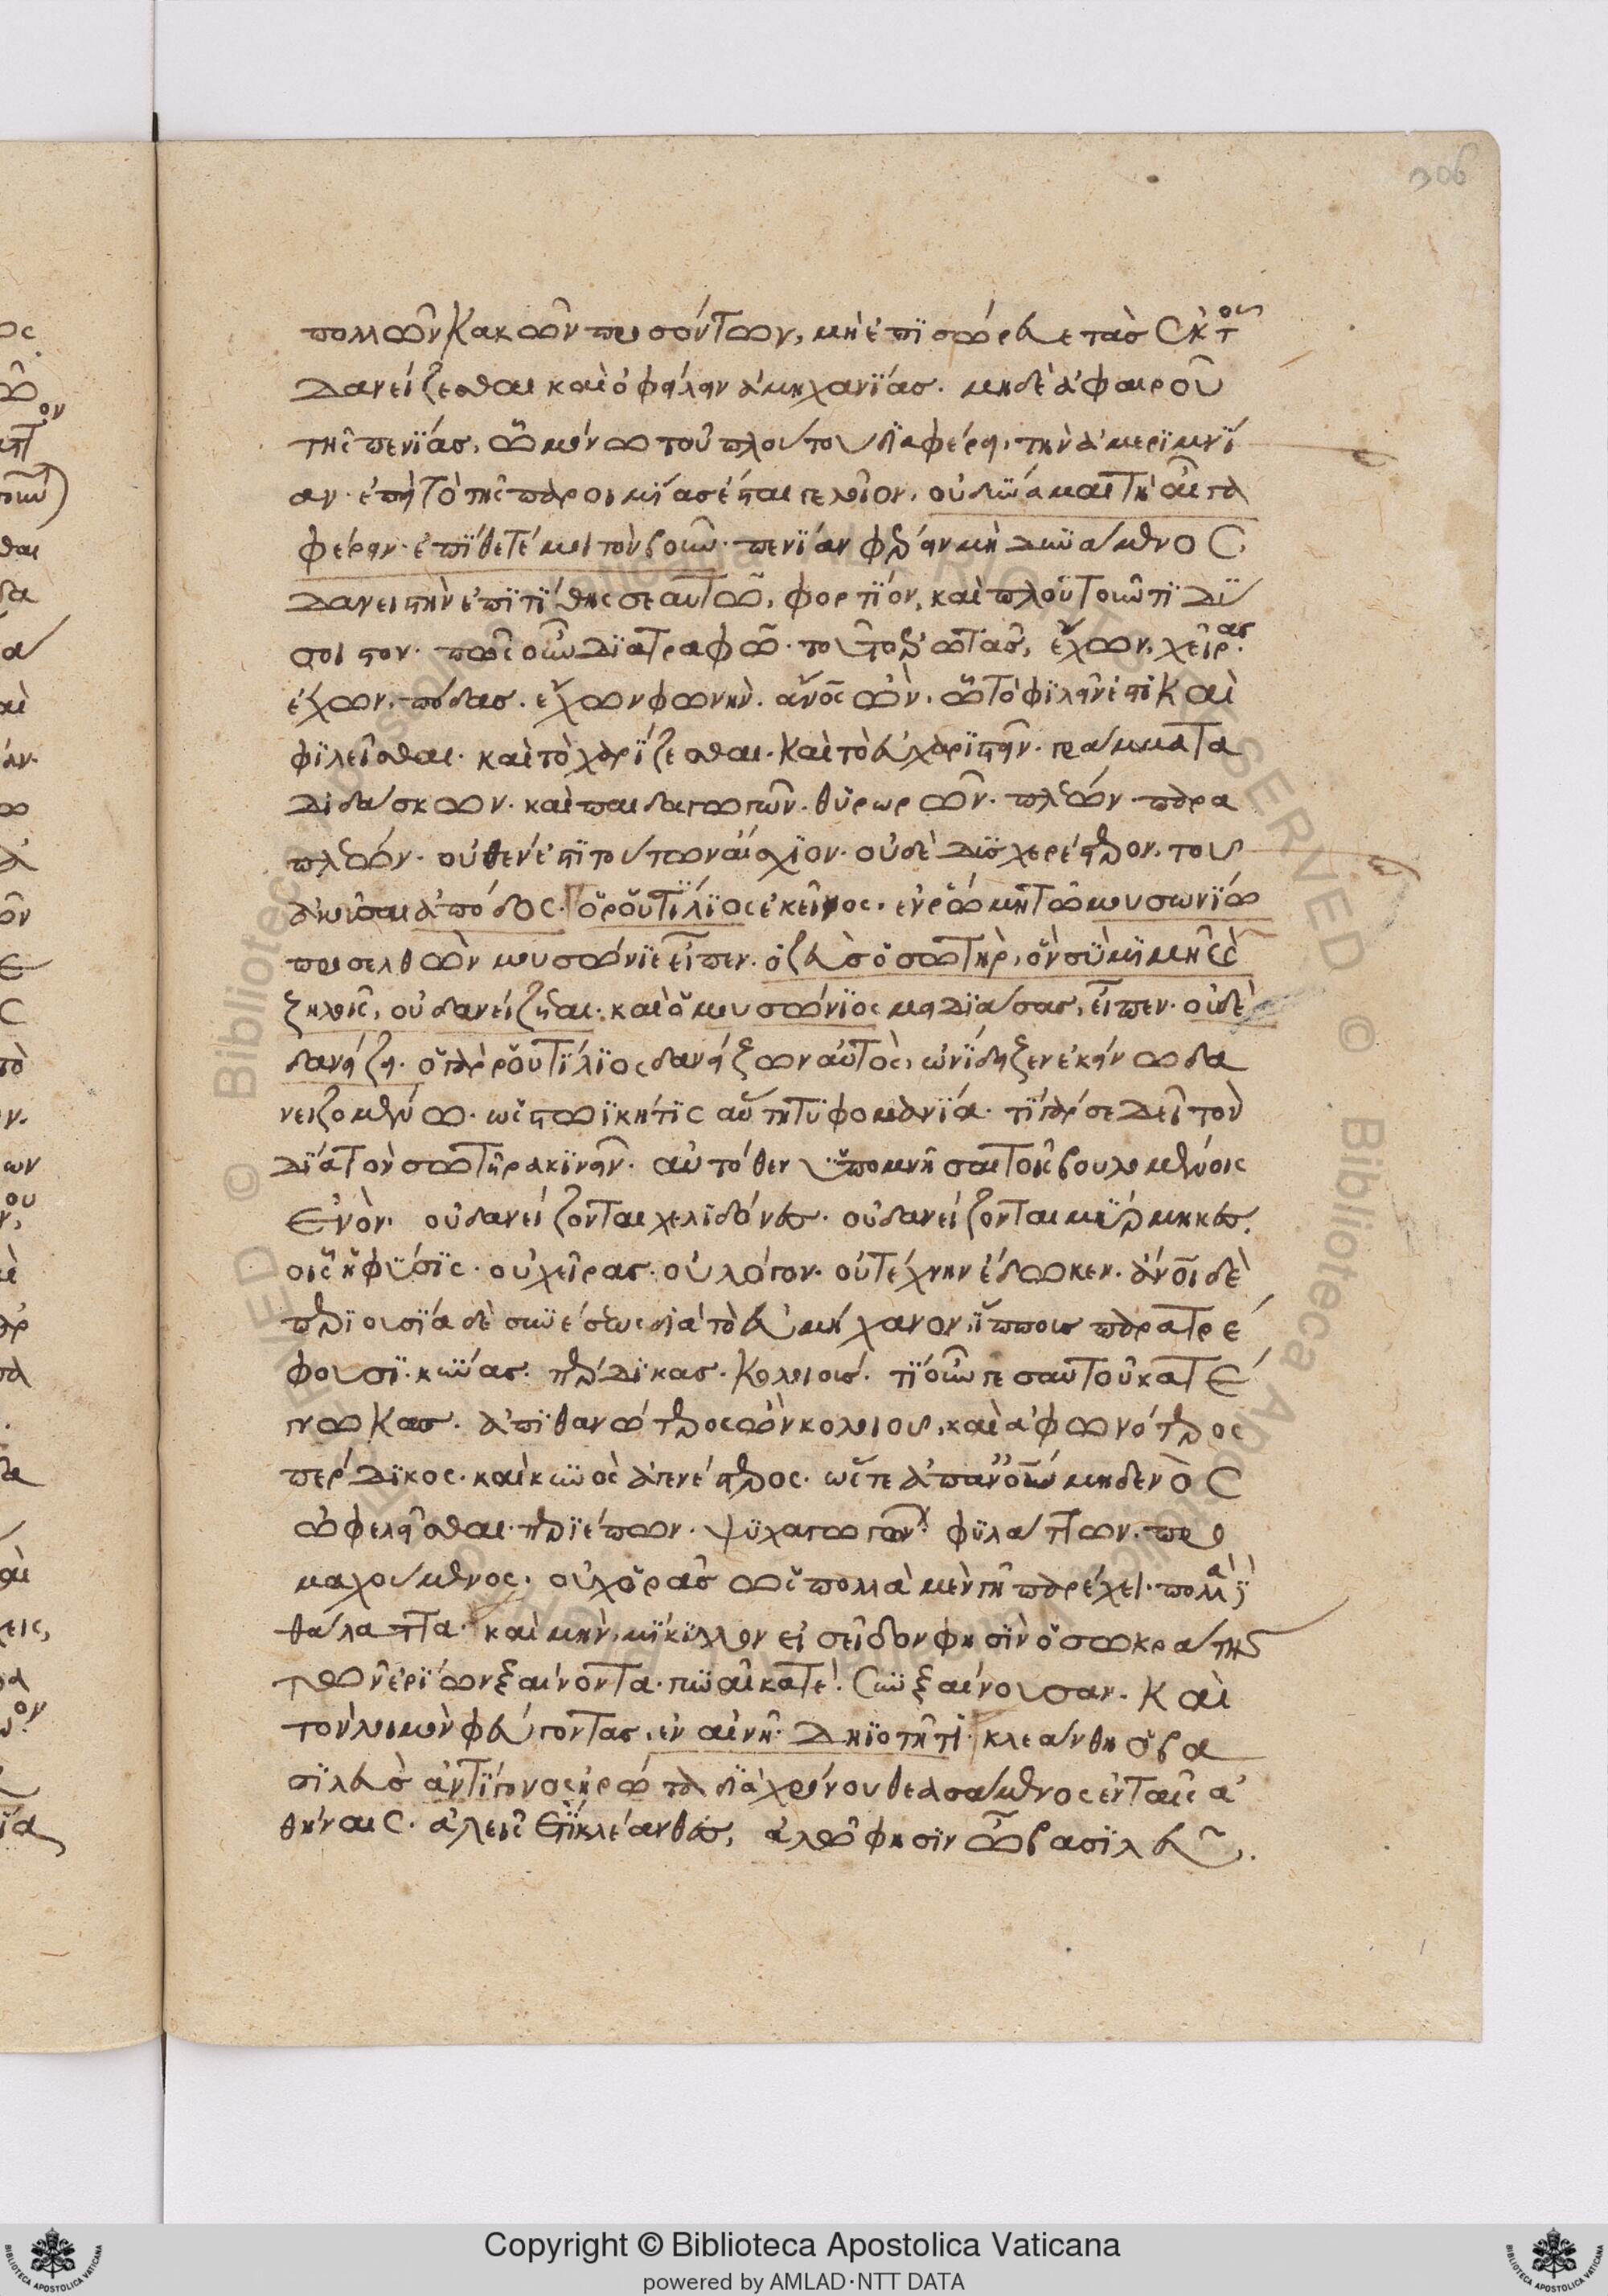 306
πολλῶν κακῶν προσόντων, μὴ ἐπισώρευε τὰς ἐκ τοῦ
δανείζεσθαι καὶ ὀφείλειν ἀμηχανίας. μηδὲ ἀφαιροῦ
τῆς πενίας, ᾧ μόνῳ τοῦ πλούτου διαφέρει, τὴν ἀμεριμνί
αν. ἐπεὶ τὸ τῆς παροιμίας ἔσται γελοῖον, οὐ δύναμαι τὴν αἶγα
φέρειν. ἐπίθετέ μοι τὸν βοῦν. πενίαν φέρειν μὴ δυνάμενος
δανειστὴν ἐπιτίθης σεαυτῷ, φορτίον, καὶ πλουτοῦντι δύ
σοιστον. πῶς οὖν διατραφῶ. τοῦτο ἐρωτᾷς, ἔχων, χεῖρας.
ἔχων, πόδας. ἔχων φωνήν. ἄνος ὤν. ᾧ τὸ φιλεῖν ἐστι καὶ
φιλεῖσθαι. καὶ τὸ χαρίζεσθαι. καὶ τὸ εὐχαριστεῖν. γράμματα
διδάσκων. καὶ παιδαγωγῶν. θυρωρῶν. πλέων. παρα
πλέων. οὐθέν ἐστι τούτων αἴσχιον. οὐδὲ δυσχερέστερον. τοῦ
ἀκοῦσαι ἀπόδος. ὁ ῥουτίλιος ἐκεῖνος. ἐν ῥώμῃ τῷ μουσωνίῳ
προσελθὼν μουσώνιε εἶπεν. ὁ ζεὺς ὁ σωτὴρ, ὃν σὺ μιμῇ καὶ
ζηλοῖς, οὐ δανείζεται. καὶ ὁ μουσώνιος μειδιάσας, εἶπεν. οὐδὲ
δανείζει. ὁ γὰρ ῥουτίλιος δανείζων αὐτὸς, ὠνείδιζεν ἐκείνῳ δα
νειζομένῳ. στωϊκή τις αὕτη τυφομανία. τί γάρ σε δεῖ τὸν
δία τὸν σωτῆρα κινεῖν. αὐτόθεν ὑπομνῆσαι τοῖς βουλομένοις
ἐνὸν. οὐ δανείζονται χελιδόνες. οὐ δανείζονται μύρμηκες.
οἷς ἡ φύσις. οὐ χεῖρας. οὐ λόγον. οὐ τέχνην ἔδωκεν. ἄνοι δὲ
περιουσίᾳ δὲ συνέσεως διὰ τὸ εὐμήχανον, ἵππους παρατρέ
φουσι. κύνας. πέρδικας. κολοιούς. τί οὖν γε σαυτοῦ κατέ
γνωκας. ἀπιθανώτερος ὢν κολοιοῦ, καὶ ἀφωνότερος
πέρδικος. καὶ κυνὸς ἀγενέστερος. ὥστε ἀπ' ἀνοῦ μηδενὸς
ὠφελεῖσθαι. περιέπων. ψυχαγωγῶν. φυλάττων. προ
μαχούμενος. οὐχ ὁρᾷς ὡς πολλὰ μὲν γῆ παρέχει. πολλὰ δ
θάλαττα. καὶ μὴν, μίκιλλον εἰσεῖδον φησὶν ὁ σωκράτης
τῶν ἐρίων ξαίνοντα. γυναῖκά τε συνξαίνουσαν. καὶ
τὸν λιμὸν φεύγοντας, ἐν αἰνῇ. δηϊοτῆτι. κλεάνθη ὁ βα
σιλεὺς ἀντίγονος ἠρώτα διὰ χρόνου θεασάμενος ἐν ταῖς ἀ
θήναις. ἀλεῖς ἔτι κλέανθες, ἀλῶ φησιν ὦ βασιλεῦ.
Copyright © Biblioteca Apostolica Vaticana
powered by AMLAD·NTT DATA